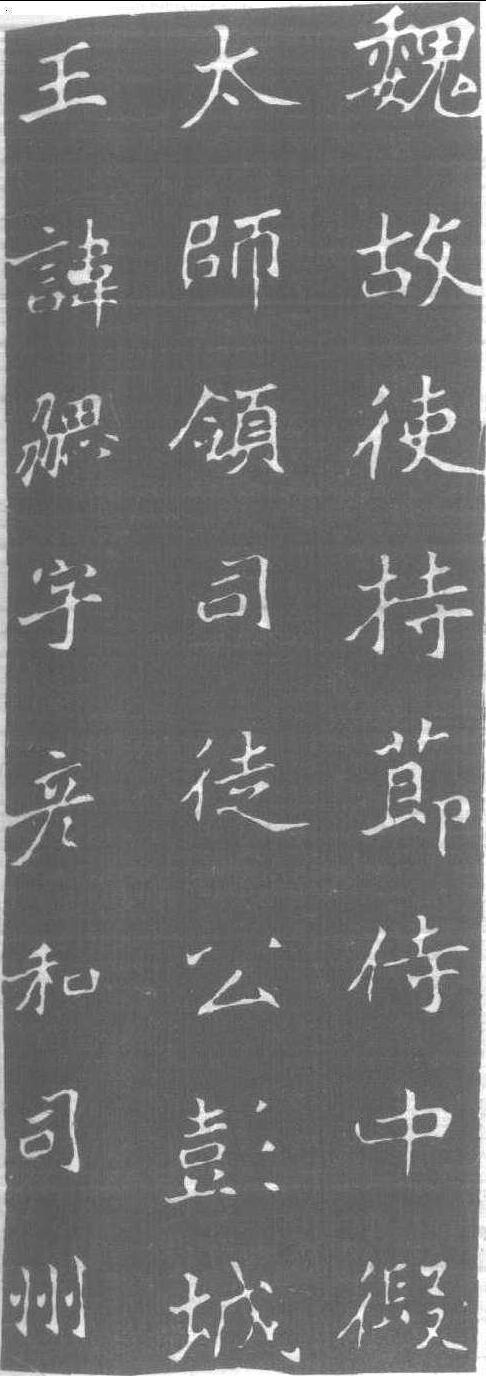 魏故使持節侍中假
太師領司徒公彭城
王諱勰字彦和司州